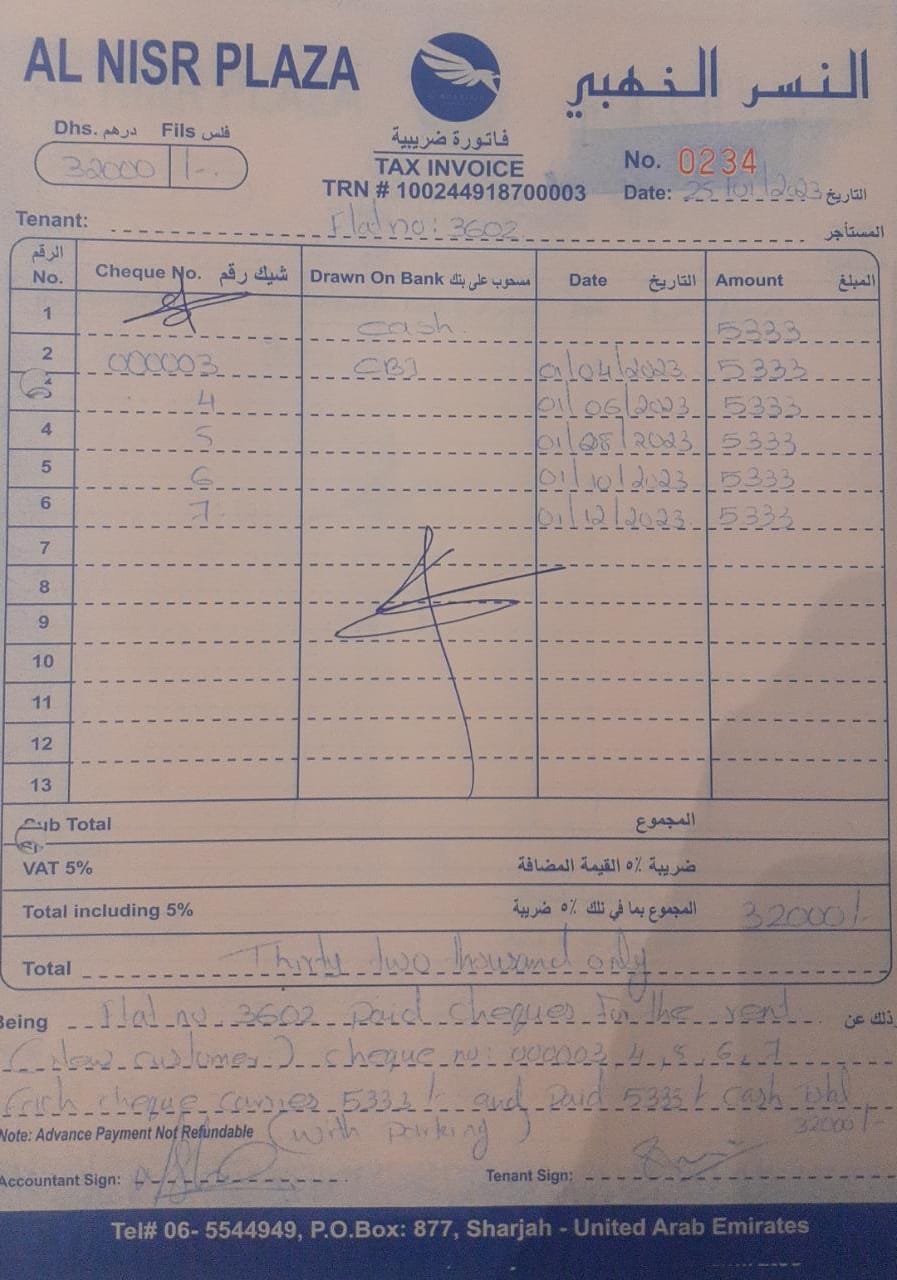 AL NISR PLAZA
النسر الذهبي
Dhs. درهم Fils فلس
32000 /-
فاتورة ضريبية
TAX INVOICE
TRN # 100244918700003
No. 0234
Date: 25/01/2023 التاريخ
Tenant: Flat no: 3602 المستأجر
الرقم No. Cheque No. شيك رقم Drawn On Bank مسحوب على بنك Date التاريخ Amount المبلغ
1 cash 5333
2 000003 CBI 01/04/2023 5333
4 01/06/2023 5333
4 5 01/08/2023 5333
5 6 01/10/2023 5333
6 7 01/12/2023 5333
7
8
9
10
11
12
13
Sub Total المجموع
VAT 5% ضريبة ٥٪ القيمة المضافة
Total including 5% المجموع بما في تلك ٥٪ ضريبة 32000/-
Total Thirty two thousand only
Being Flat no. 3602 Paid cheques For the rent ذلك عن
(New customer) cheque no: 000003, 4, 5, 6, 7
Each cheque carries 5333/- and paid 5333/- cash
32000/-
Note: Advance Payment Not Refundable (with parking)
Accountant Sign: Tenant Sign:
Tel# 06- 5544949, P.O.Box: 877, Sharjah - United Arab Emirates